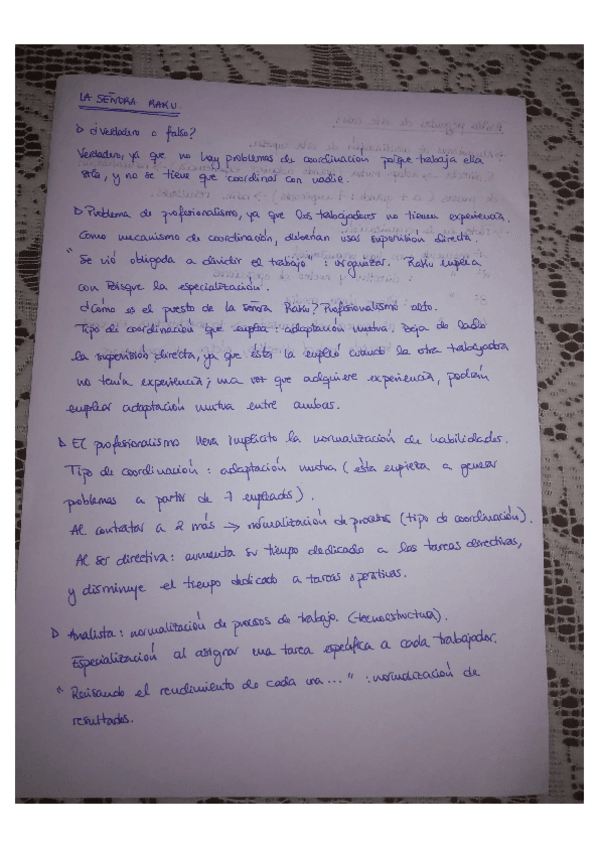 LA SEÑORA RAKU.
▷ ¿Verdadero o falso?
Verdadero, ya que no hay problemas de coordinación porque trabaja ella
sola, y no se tiene que coordinar con nadie.
▷ Problema de profesionalismo, ya que los trabajadores no tienen experiencia.
Como mecanismo de coordinación, deberían usar supervisión directa.
"Se vió obligada a dividir el trabajo": organizar. Raku emplea
con Bisque la especialización.
¿Cómo es el puesto de la señora Raku? Profesionalismo alto.
Tipo de coordinación que emplea: adaptación mutua. Deja de lado
la supervisión directa, ya que ésta la empleó cuando la otra trabajadora
no tenía experiencia; una vez que adquiere experiencia, podrán
emplear adaptación mutua entre ambas.
▷ El profesionalismo lleva implícito la normalización de habilidades.
Tipo de coordinación: adaptación mutua (ésta empieza a generar
problemas a partir de 7 empleados).
Al contratar a 2 más → normalización de procesos (tipo de coordinación).
Al ser directiva: aumenta su tiempo dedicado a las tareas directivas,
y disminuye el tiempo dedicado a tareas operativas.
▷ Analista: normalización de procesos de trabajo. (tecnoestructura).
Especialización al asignar una tarea específica a cada trabajador.
"Revisando el rendimiento de cada una...": normalización de
resultados.